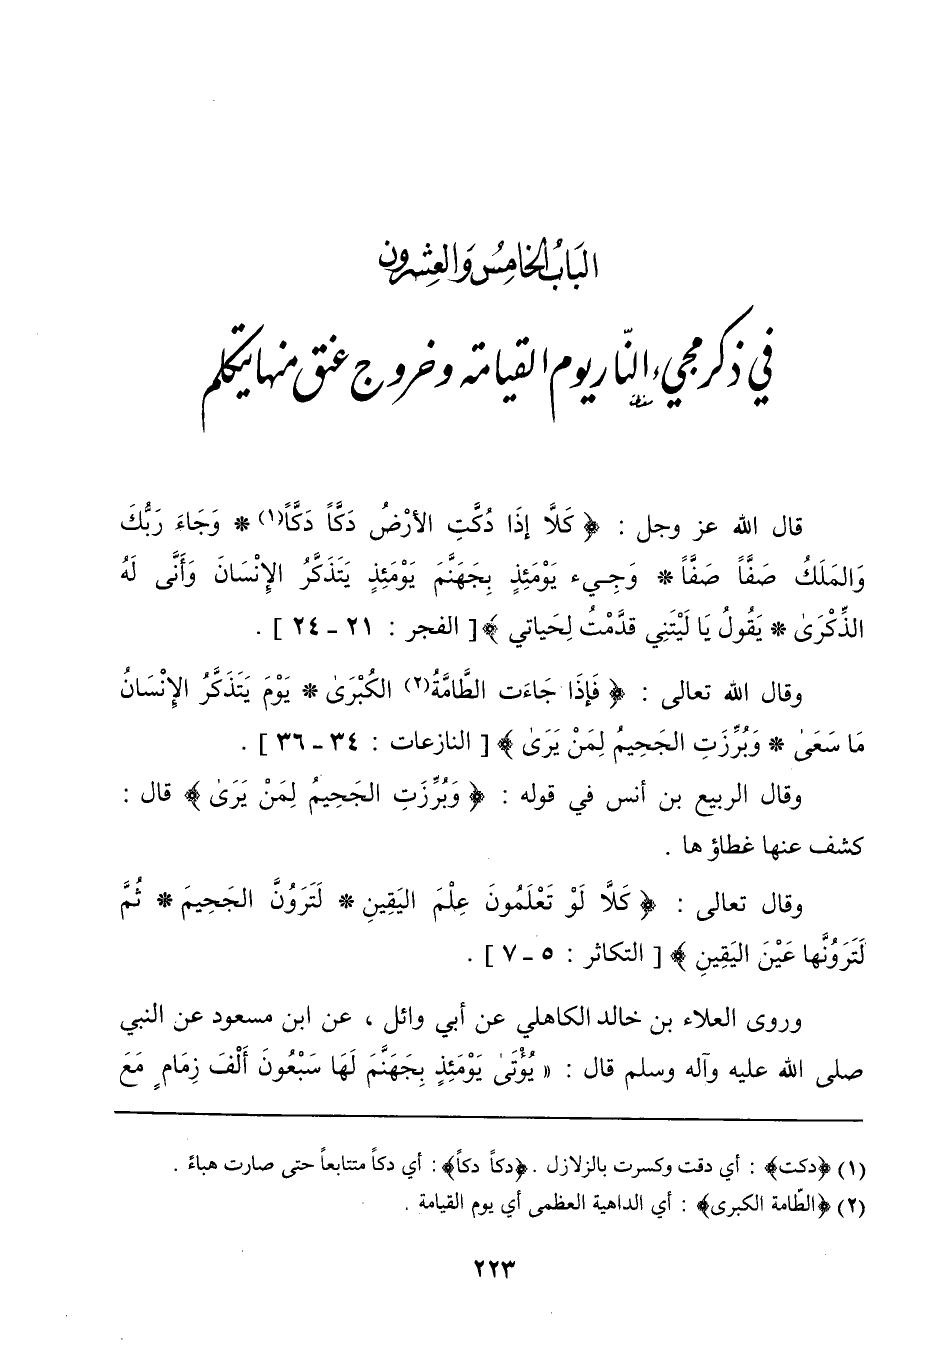 البَابُ الخَامِسُ وَالعِشرون
في ذكر مجيء النّار يوم القيامة وخروج عنق منها يتكلم
قال الله عز وجل : ﴿ كَلَّا إذَا دُكَّتِ الأرْضُ دَكَّاً دَكَّاً(١) * وَجَاءَ رَبُّكَ
وَالمَلَكُ صَفَّاً صَفَّاً * وَجِيء يَوْمَئِذٍ بِجَهَنَّمَ يَوْمَئِذٍ يَتَذَكَّرُ الإنْسَانَ وَأَنَّى لَهُ
الذِّكْرَىٰ * يَقُولُ يَا لَيْتَنِي قدَّمْتُ لِحَياتي ﴾ [ الفجر : ٢١ - ٢٤ ] .
وقال الله تعالى : ﴿ فَإِذَا جَاءَت الطَّامَّةُ(٢) الكُبْرَىٰ * يَوْمَ يَتَذَكَّرُ الإنْسَانُ
مَا سَعَىٰ * وَبُرِّزَتِ الجَحيمُ لِمَنْ يَرَىٰ ﴾ [ النازعات : ٣٤ - ٣٦ ] .
وقال الربيع بن أنس في قوله : ﴿ وَبُرِّزَتِ الجَحيمُ لِمَنْ يَرَىٰ ﴾ قال :
كشف عنها غطاؤ ها .
وقال تعالى : ﴿ كَلَّا لَوْ تَعْلَمُونَ عِلْمَ اليَقينِ * لَتَرَوُنَّ الجَحيمَ * ثُمَّ
لَتَرَوُنَّها عَيْنَ اليَقِينِ ﴾ [ التكاثر : ٥ - ٧ ] .
وروى العلاء بن خالد الكاهلي عن أبي وائل ، عن ابن مسعود عن النبي
صلى الله عليه وآله وسلم قال : « يُؤْتَىٰ يَوْمَئِذٍ بِجَهَنَّمَ لَهَا سَبْعُونَ أَلْفَ زِمَامٍ مَعَ
(١) ﴿دكت﴾ : أي دقت وكسرت بالزلازل . ﴿دكاً دكاً﴾ : أي دكاً متتابعاً حتى صارت هباءً .
(٢) ﴿الطّامة الكبرى﴾ : أي الداهية العظمى أي يوم القيامة .
٢٢٣